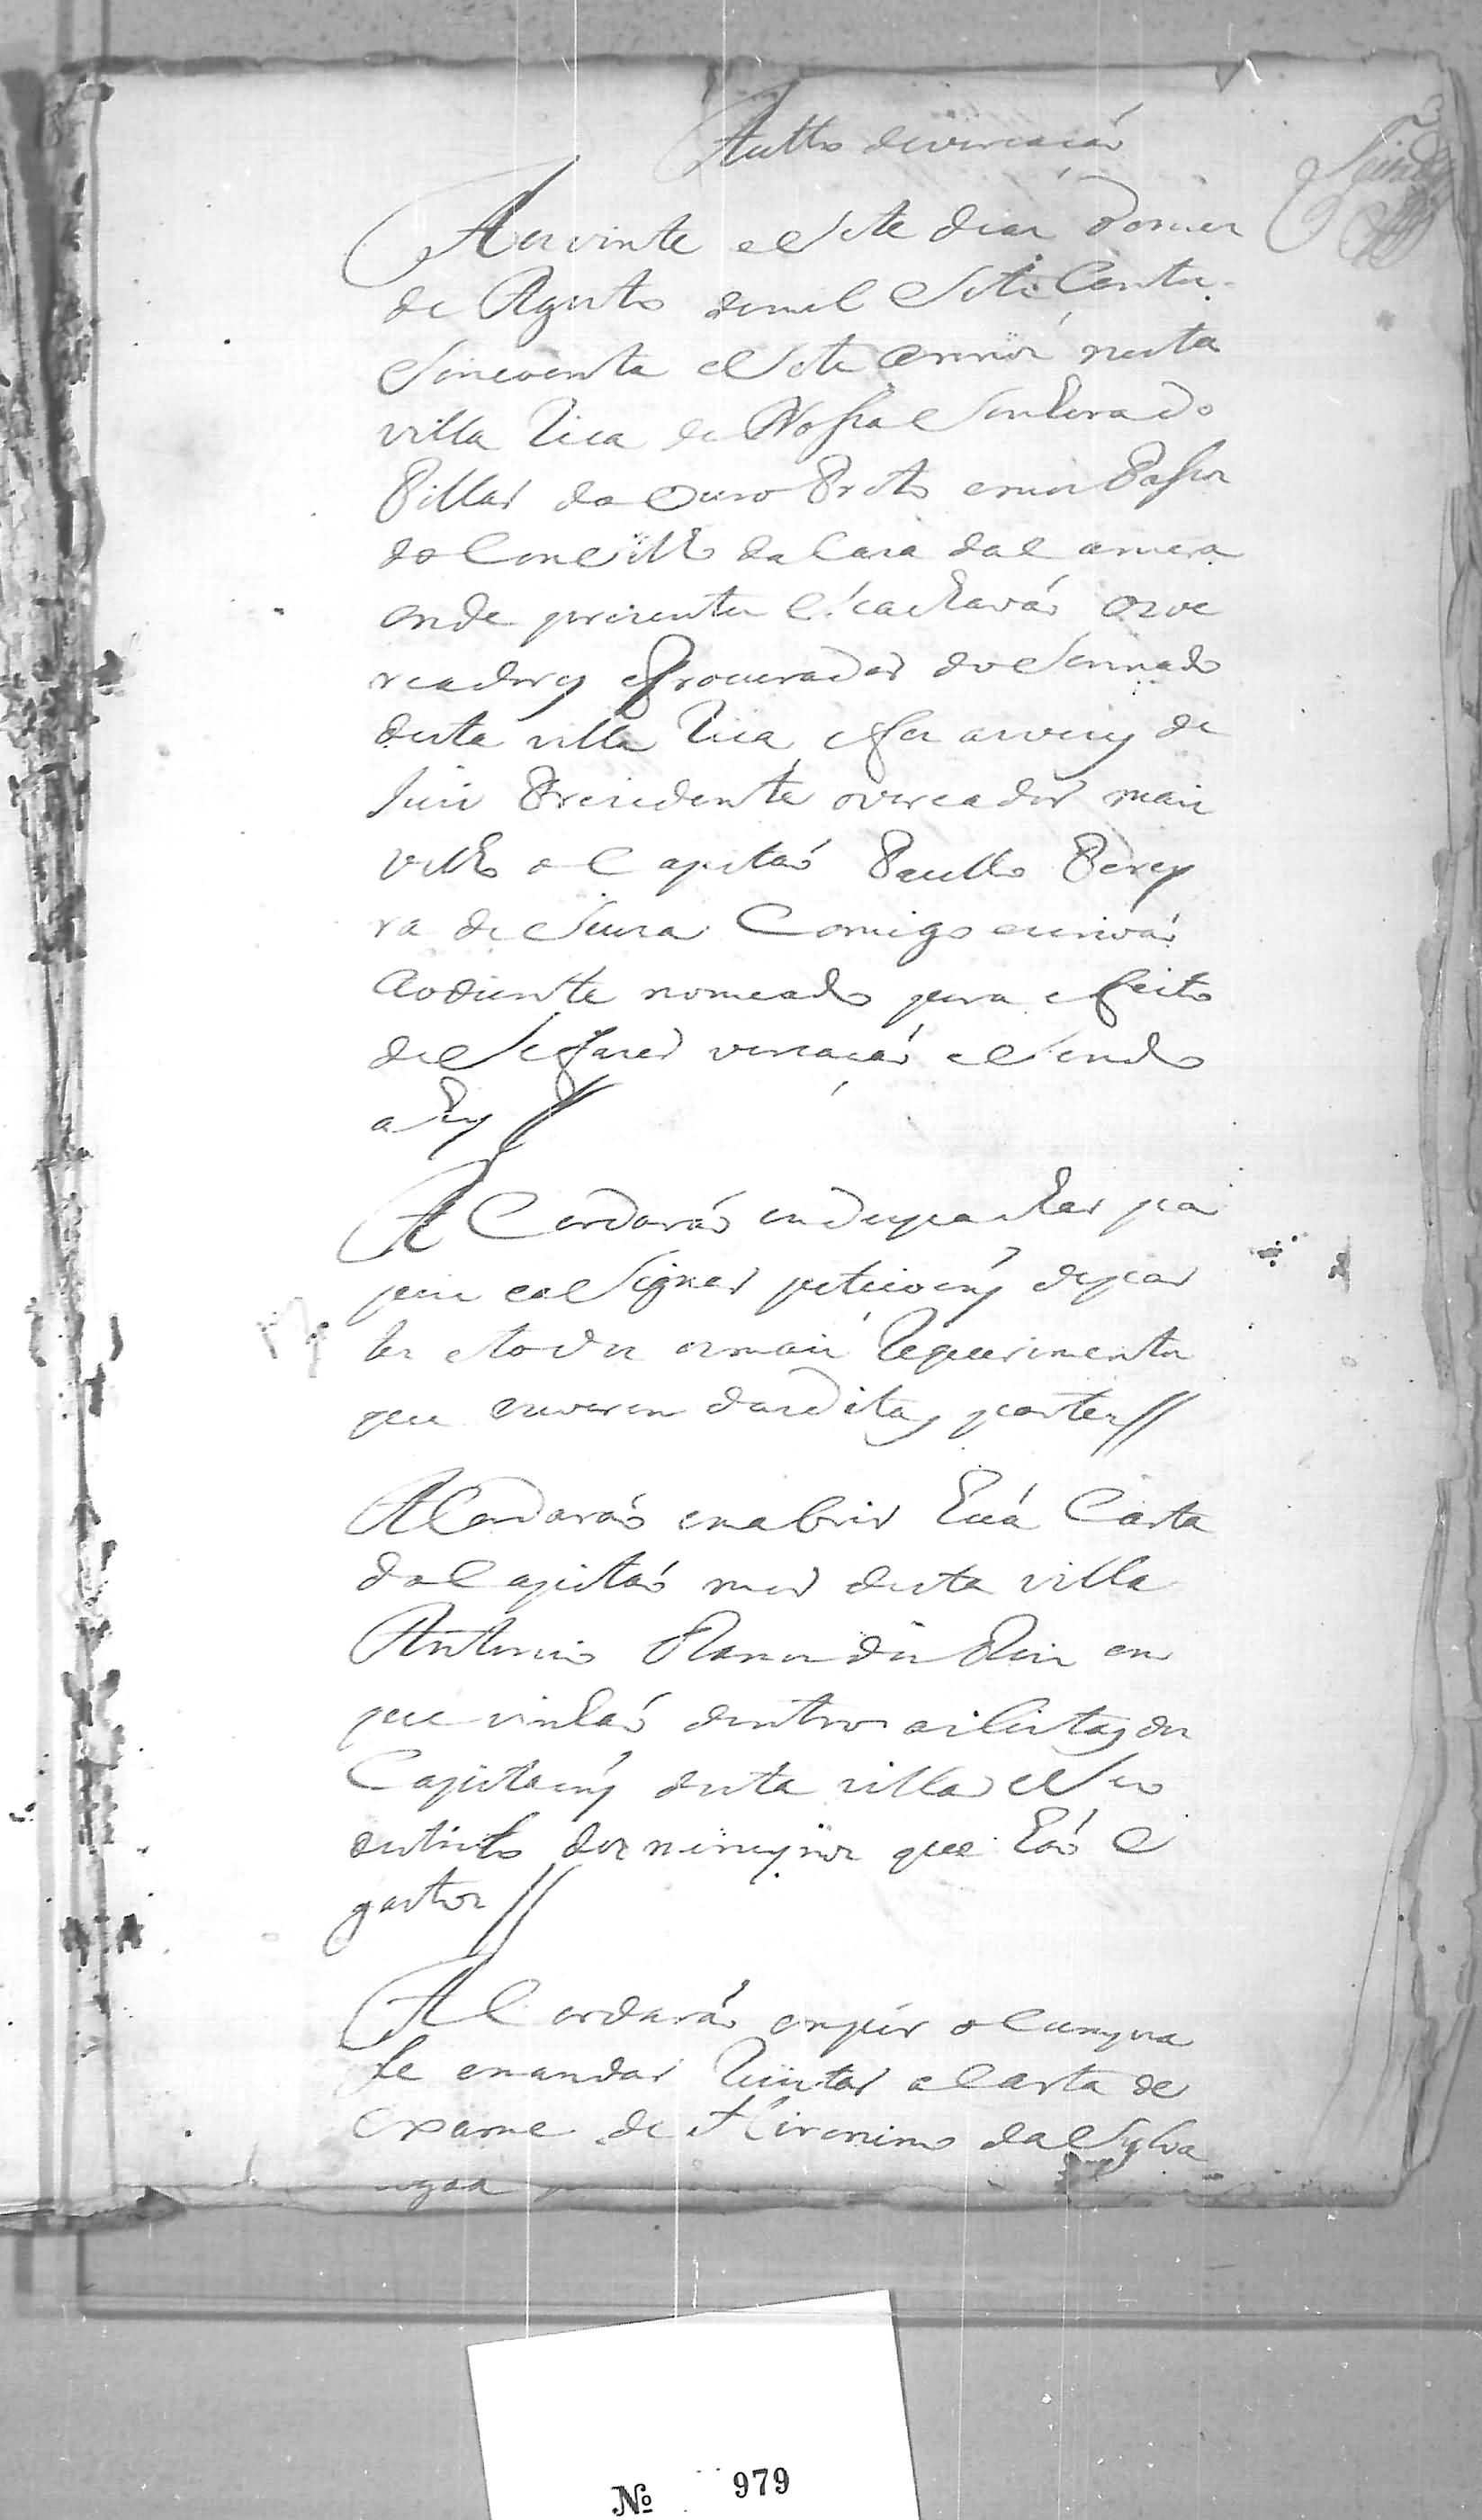 Autto devereacaó
Aos vinte e Sete dias domes
de Agosto demil e Sete Centos
e Sincoenta e Sete annos nesta
villa Rica de Nossa Senhora do
Pillar do Ouro Preto emos Passos
do Concelho da Casa da Camera
onde prezentes Se achavaó os ve
readores e Procurador do Sennado
desta villa Rica e fes as vezes de
Juis Prezidente o vereador mais
velho o Capitaó Paullo Perey
ra de Souza Comigo escrivaó
ao diente nomeado para efeito
de Se fazer vereacaó e Sendo
ahy //
ACordaraó em despachar pa
peis e aSignar peticoens de par
tes e todos os mais Requerimentos
que ouverem das ditas partes //
ACordaraó em abrir huá Carta
do Capitaó mor desta villa
Antonio Ramos dos Reis em
que vinhaó dentro as listas dos
Capitaens desta villa e Seo
destrito dos mineyros que haó e
gastos //
ACordaraó em por o Cumpra
Se e mandar Registar a Carta de
exame de Hieronimo da Sylva
Nº 979